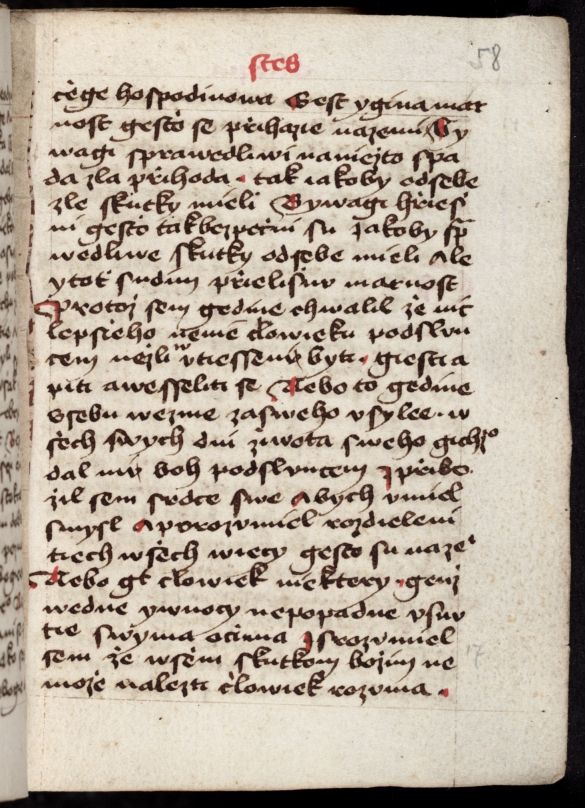 stes
58
czege hospodinowa Gest y gina mar
nost gesto se przihazie nazemi By
wagi sprawedliwi naniezto spa
da zla przihoda. tak iakoby odsebe
zle skutky mieli Bywagi hrziess
ni gesto takbezpeczni su Jakoby spra
wedliwe skutky odsebe mieli Ale
ytot sudim przielissnu marnost
Protoz sem gedine chwalil ze nic
lepsieho nemie czlowieku podslun
cem nezli w vtiessenie byti. giesti a
piti awesseliti se Nebo to gedine
ssebu wezme zasweho vsylee. w
ssech swych dni ziwota sweho gichzo
dal mu boh podsluncem J przilo
zil sem srdce swe Abych vmiel
smysl A porozumiel rozdieleni
tiech wssech wiecy gesto su naze
Nebo gt czlowiek niektery. genz
wedne ywnocy nepopadne vsnu
tie swyma oczima J srozumiel
sem ze wssem skutkom bozim ne
moze nalezti czlowiek rozuma.
17